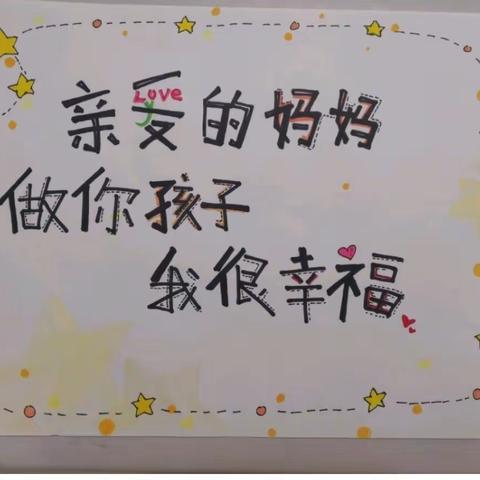 亲爱的妈妈
Love
做你孩子
我很幸福